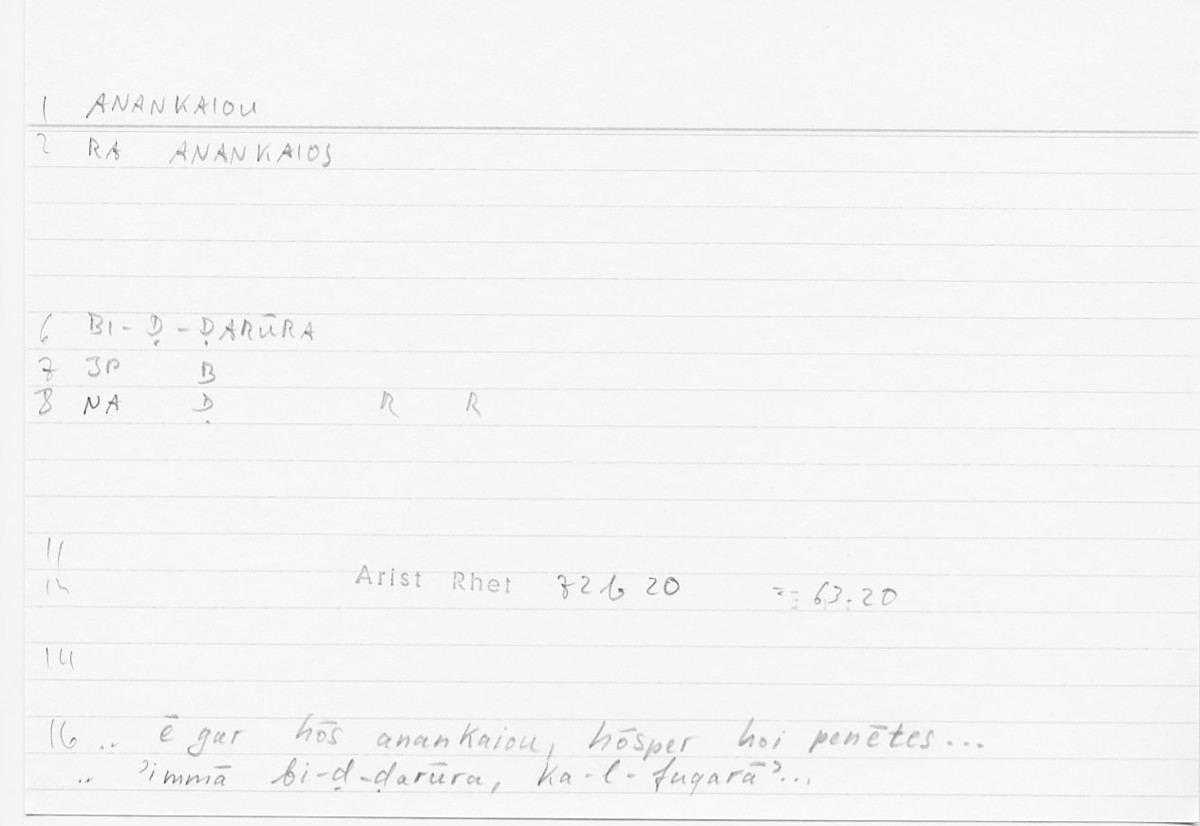 1 ANANKAIOU
2 RA ANANKAIOS
6 BI-Ḍ-ḌARŪRA
7 3P B
8 NA Ḍ R R
11
12 Arist Rhet 72b 20 = 63.20
14
16 .. ē gar hōs anankaiou, hōsper hoi penētes...
.. ʾimmā bi-ḍ-ḍarūra, ka-l-fuqarāʾ...